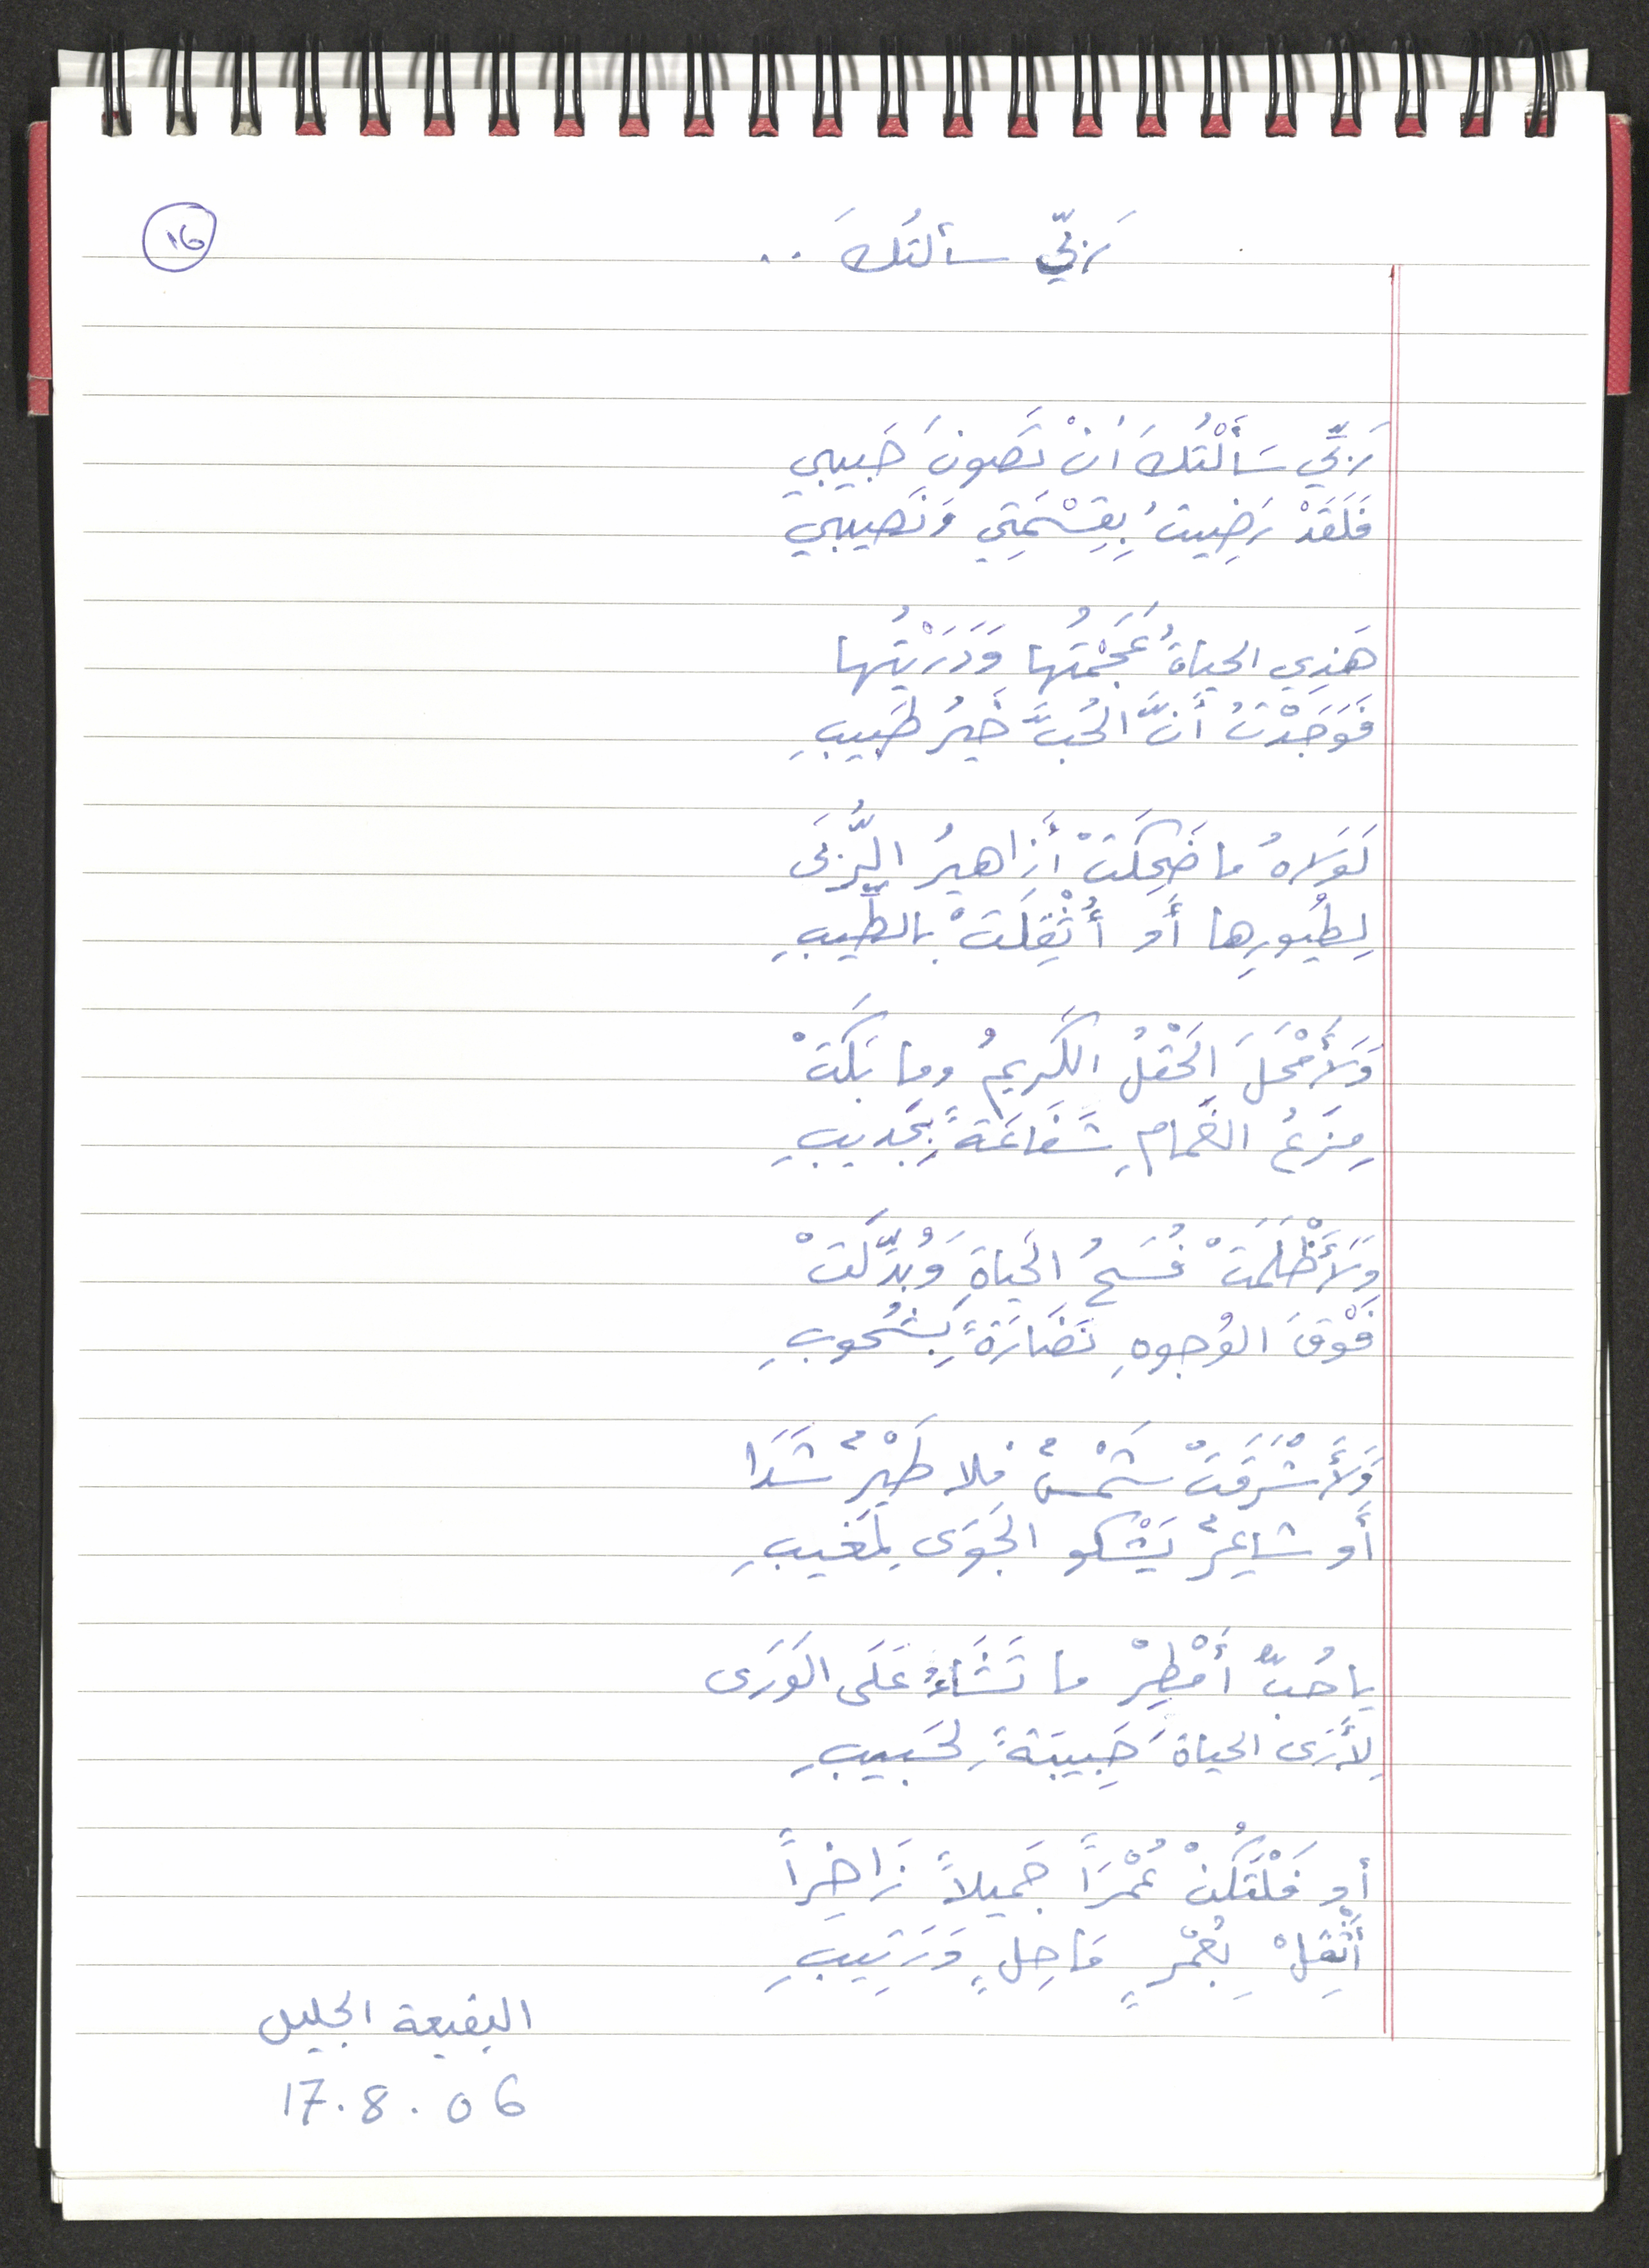 16
رَبّي سألتُكَ ..
رَبِّي سَأَلْتُكَ أنْ تَصونَ حَبيبي
فَلَقَدْ رَضِيتُ بِقِسْمَتِي وَنَصيبي
هَذِي الحياةُ عَجَمْتُها وَدَرَيْتُها
فَوَجَدْتُ أَنَّ الحُبَّ خَيرُ طَبيبِ
لَولاهُ ما ضَحِكَتْ أَزاهيرُ الرُّبَى
لِطُيورِها أَو أُثْقِلَتْ بالطِّيبِ
وَلَأَمْحَلَ الحَقْلُ الكَريمُ وما بَكَتْ
مِزَعُ الغَمامِ شَفاعَةً بِجَديبِ
وَلَأَظْلَمَتْ فُسَحُ الحَياةِ وَبُدِّلَتْ
فَوْقَ الوُجوهِ نَضَارَةً بِشُحوبِ
وَلَأَشْرَقَتْ شَمْسٌ فلا طَيْرٌ شَدَا
أَو شاعِرٌ يَشْكو الجَوَى لِمَغيبِ
يا حُبُّ أَمْطِرْ ما تَشَاءُ عَلَى الوَرَى
لِأَرَى الحياةَ حَبِيبَةً لِحَبيبِ
أو فَلْتَكُنْ عُمْرَاً جَميلاً زَاخِراً
أَثْقِلْ بِعُمْرٍ مَاحِلٍ وَرَتِيبِ
البقيعة الجليل
17.8.06